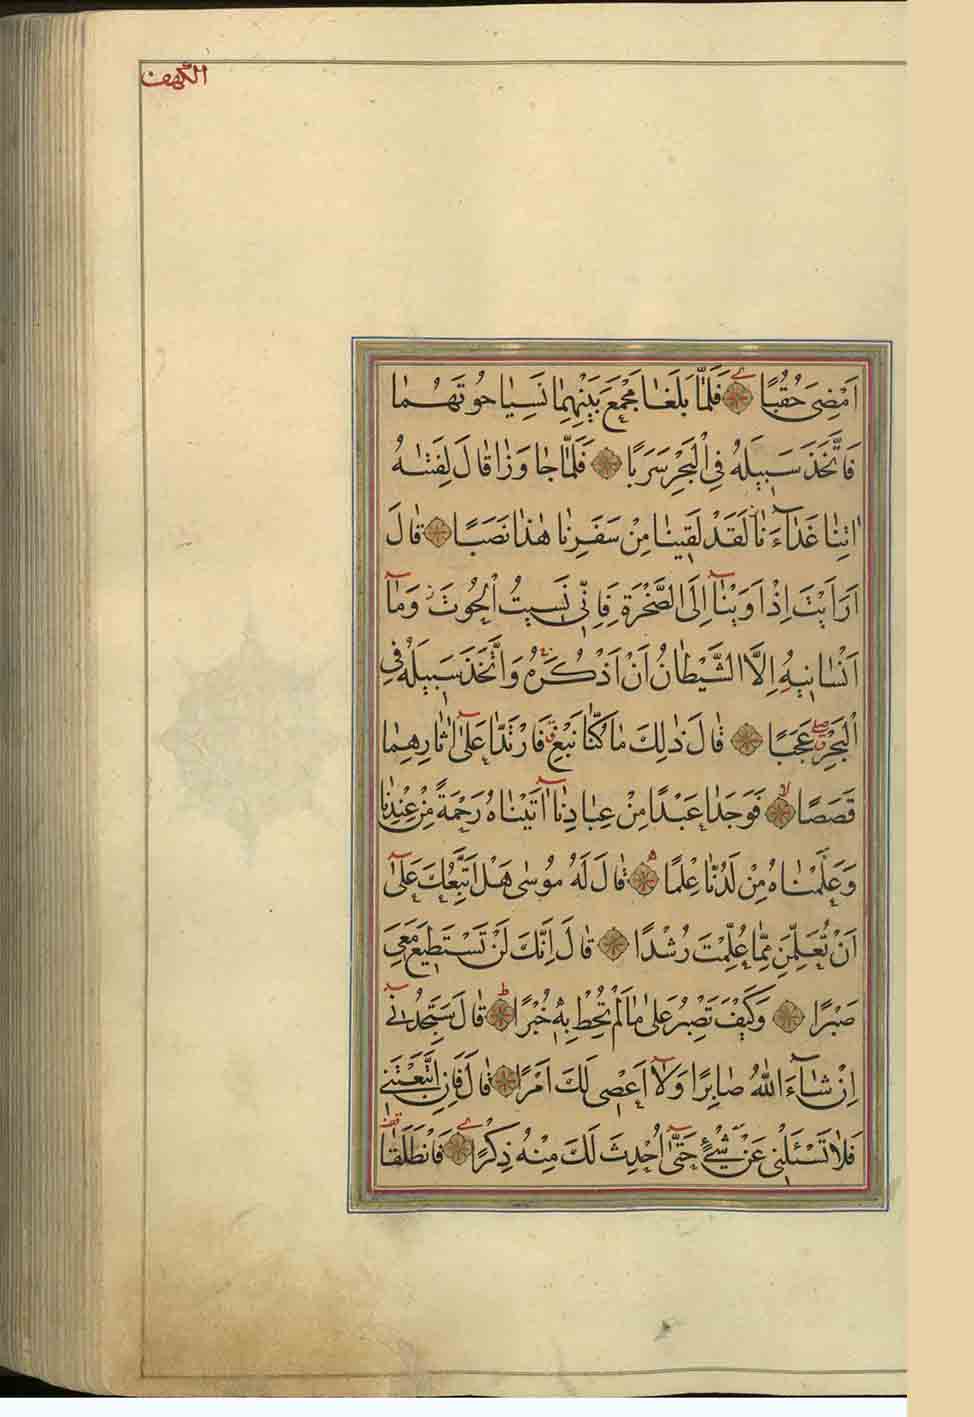 الكهف
اَمْضِىَ حُقُبًا فَلَمّٰا بَلَغٰا مَجْمَعَ بَيْنِهِمٰا نَسِيٰا حُوتَهُمٰا
فَاتَّخَذَ سَبِيلَهُ فِى الْبَحْرِ سَرَبًا فَلَمّٰا جٰاوَزٰا قٰالَ لِفَتٰىهُ
اٰتِنٰا غَدٰٓاءَنٰا لَقَدْ لَقِينٰا مِنْ سَفَرِنٰا هٰذٰا نَصَبًا قٰالَ
اَرَاَيْتَ اِذْ اَوَيْنٰٓا اِلَى الصَّخْرَةِ فَاِنِّى نَسِيتُ الْحُوتَ وَمٰٓا
اَنْسٰانِيهُ اِلَّا الشَّيْطٰانُ اَنْ اَذْكُرَهُ وَاتَّخَذَ سَبِيلَهُ فِى
الْبَحْرِ عَجَبًا قٰالَ ذٰلِكَ مٰا كُنّٰا نَبْغِ فَارْتَدّٰا عَلٰٓى اٰثٰارِهِمٰا
قَصَصًا فَوَجَدٰا عَبْدًا مِنْ عِبٰادِنٰٓا اٰتَيْنٰاهُ رَحْمَةً مِنْ عِنْدِنٰا
وَعَلَّمْنٰاهُ مِنْ لَدُنّٰا عِلْمًا قٰالَ لَهُ مُوسٰى هَلْ اَتَّبِعُكَ عَلٰٓى
اَنْ تُعَلِّمَنِ مِمّٰا عُلِّمْتَ رُشْدًا قٰالَ اِنَّكَ لَنْ تَسْتَطِيعَ مَعِىَ
صَبْرًا وَكَيْفَ تَصْبِرُ عَلٰى مٰا لَمْ تُحِطْ بِهِ خُبْرًا قٰالَ سَتَجِدُنِىٓ
اِنْ شٰٓاءَ اللّٰهُ صٰابِرًا وَلٰٓا اَعْصِى لَكَ اَمْرًا قٰالَ فَاِنِ اتَّبَعْتَنِى
فَلٰا تَسْئَلْنِى عَنْ شَيْءٍ حَتّٰٓى اُحْدِثَ لَكَ مِنْهُ ذِكْرًا فَانْطَلَقٰا